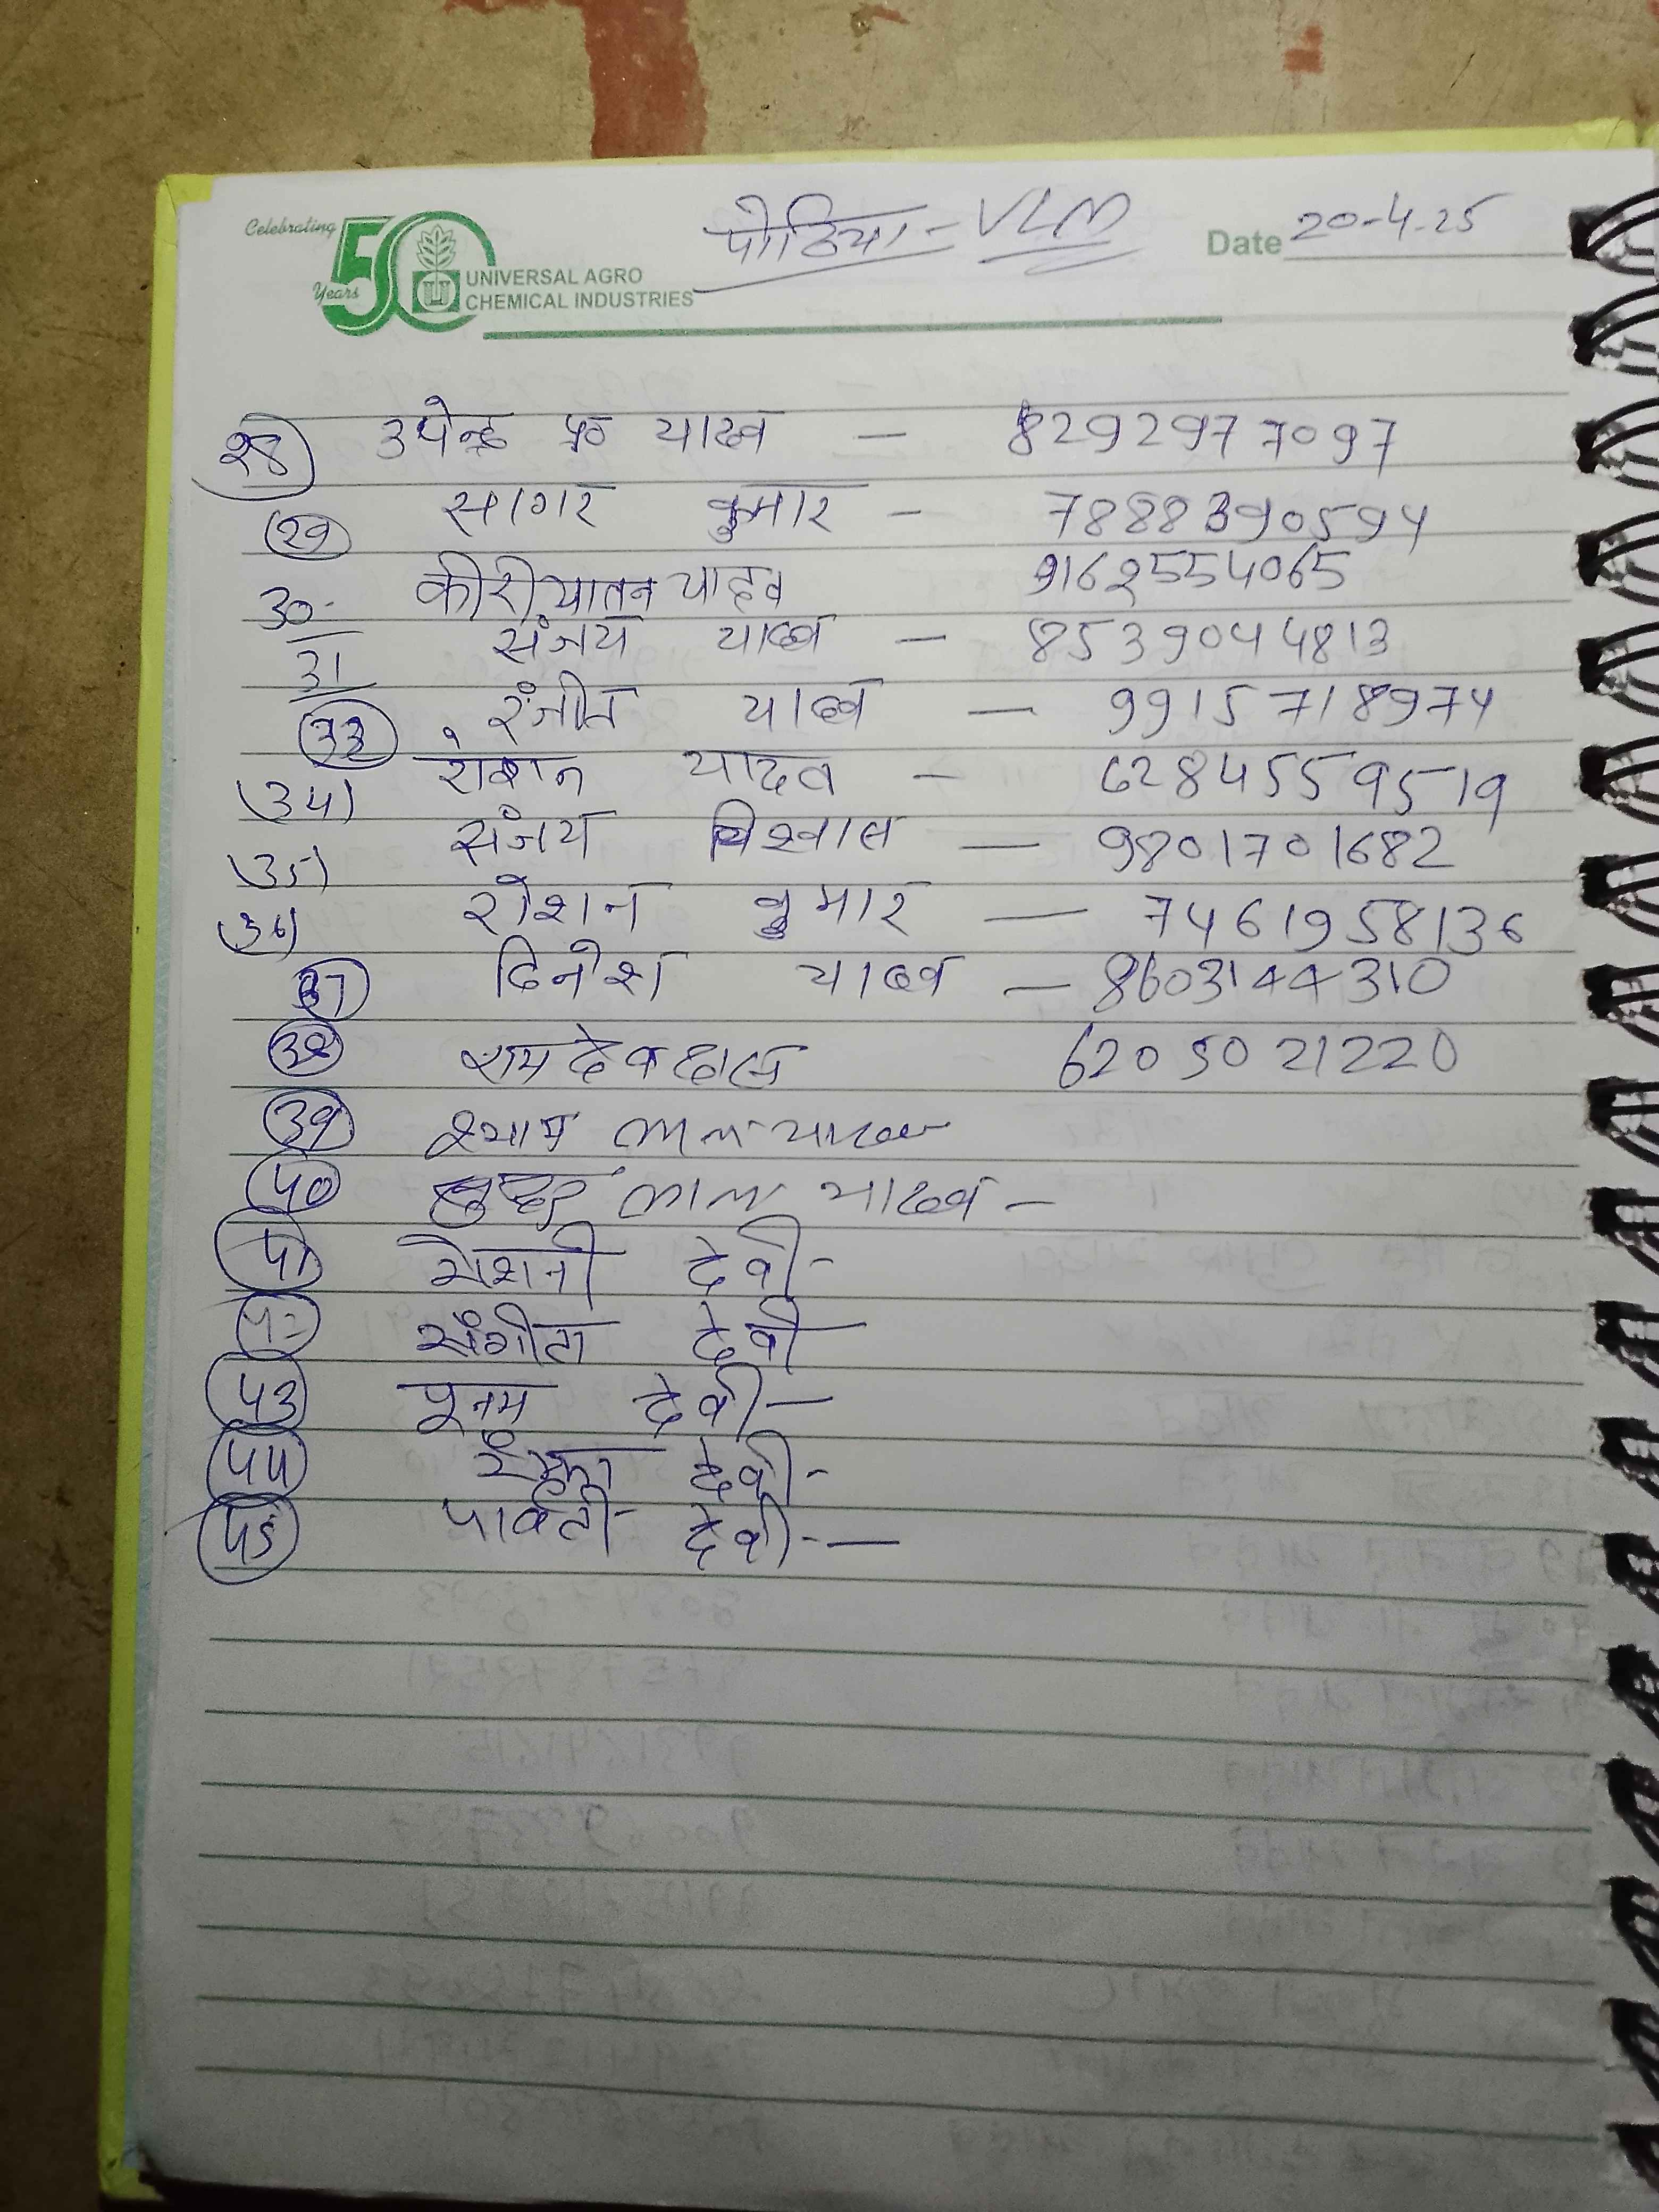 Celebrating
50
Years
UNIVERSAL AGRO
CHEMICAL INDUSTRIES
पोठिया - VLM
Date 20-4-25
२8 उपेन्द्र प्र० यादव — 8292977097
२9 सागर कुमार - 7888390594
30- कीरीयातन यादव 9162554065
31 संजय यादव — 8539044813
33 रंजीत यादव — 9915718974
(34) रोशन यादव - 6284559519
(35) संजय विश्वास — 9801701682
(36) रोशन कुमार — 7461958136
37 दिनेश यादव — 8603144310
38 रामदेव 6205021220
39 श्याम लाल यादव
40 लाल यादव -
41 रोशनी देवी-
42 संगीता देवी
43 पूनम देवी—
44 देवी-
45 पार्वती देवी-—